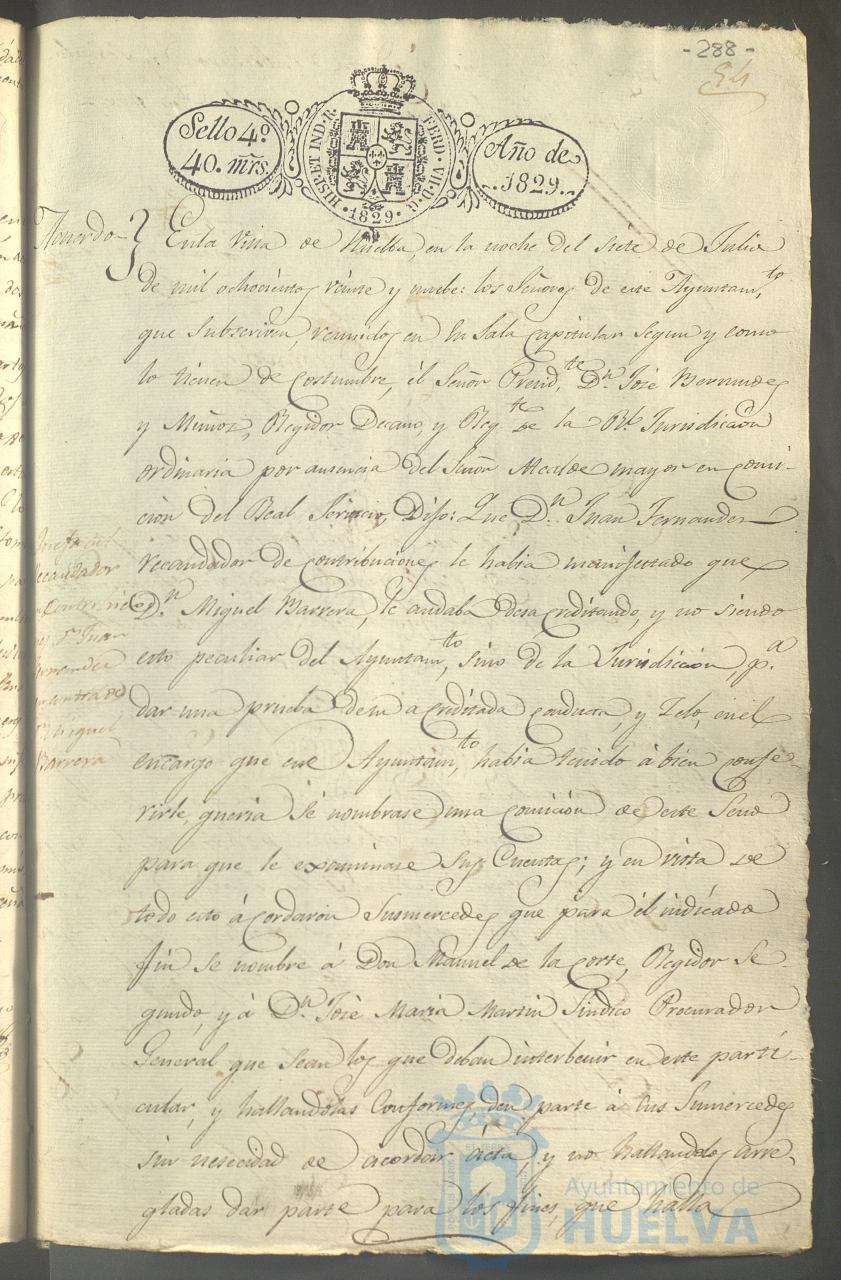 -288-
54
Sello 4º
40. mr̃s.
HISP. ET IND. R.
FERD. VII. D. G.
·1829·
Año de
1829.
Acuerdo
En la Villa de Huelba, en la noche del siete de Julio
de mil ochocientos veinte y nuebe: los Señores de este Ayuntam.to
que Subscriven, reunidos en la Sala Capitular segun y como
lo tienen de costumbre, él Señor Presid.te D.n José Bermudes
y Muñoz, Regidor Decano, y Reg.te de la Rl. Jurisdiccion
ordinaria por ausencia del Señor Alcalde mayor en comi-
cion del Real Servicio, Dijo: Que D.n Juan Fernandez
recaudador de contribuciones le habia manifestado que
D.n Miguel Barrera, le andaba desacreditando, y no siendo
esto peculiar del Ayuntam.to, sino de la Jurisdiccion, p.a
dar una prueba de su acreditada conducta, y Zelo, en el
encargo que ese Ayuntam.to, habia tenido á bien confe-
rirle, queria se nombrase una comicion de este Seno
para que le examinase sus Cuentas; y en vista de
todo esto ácordaron Susmercedes que para él indicado
fin se nombre á Don Manuel de la Corte, Regidor Se-
gundo, y á D.n José Maria Martin Sindico Procurador
General que sean los que deban interbenir en este parti-
cular, y hallandolas conformes, den parte á sus Sumercedes
sin nesecidad de acordar ácta, y no hallandolas arre-
gladas dar parte para los fines, que halla
Quefa del
Recaudador
Contribucio
nes D.n Juan
Fernandez
en contra de
D.n Miguel
Barrera
Ayuntamiento de
HUELVA